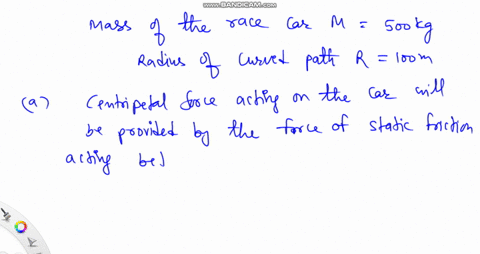 WWW.BANDICAM.COM
Mass of the race car M = 500kg
Radius of curved path R = 100m
(a) Centripetal force acting on the car will
be provided by the force of static friction
acting be)